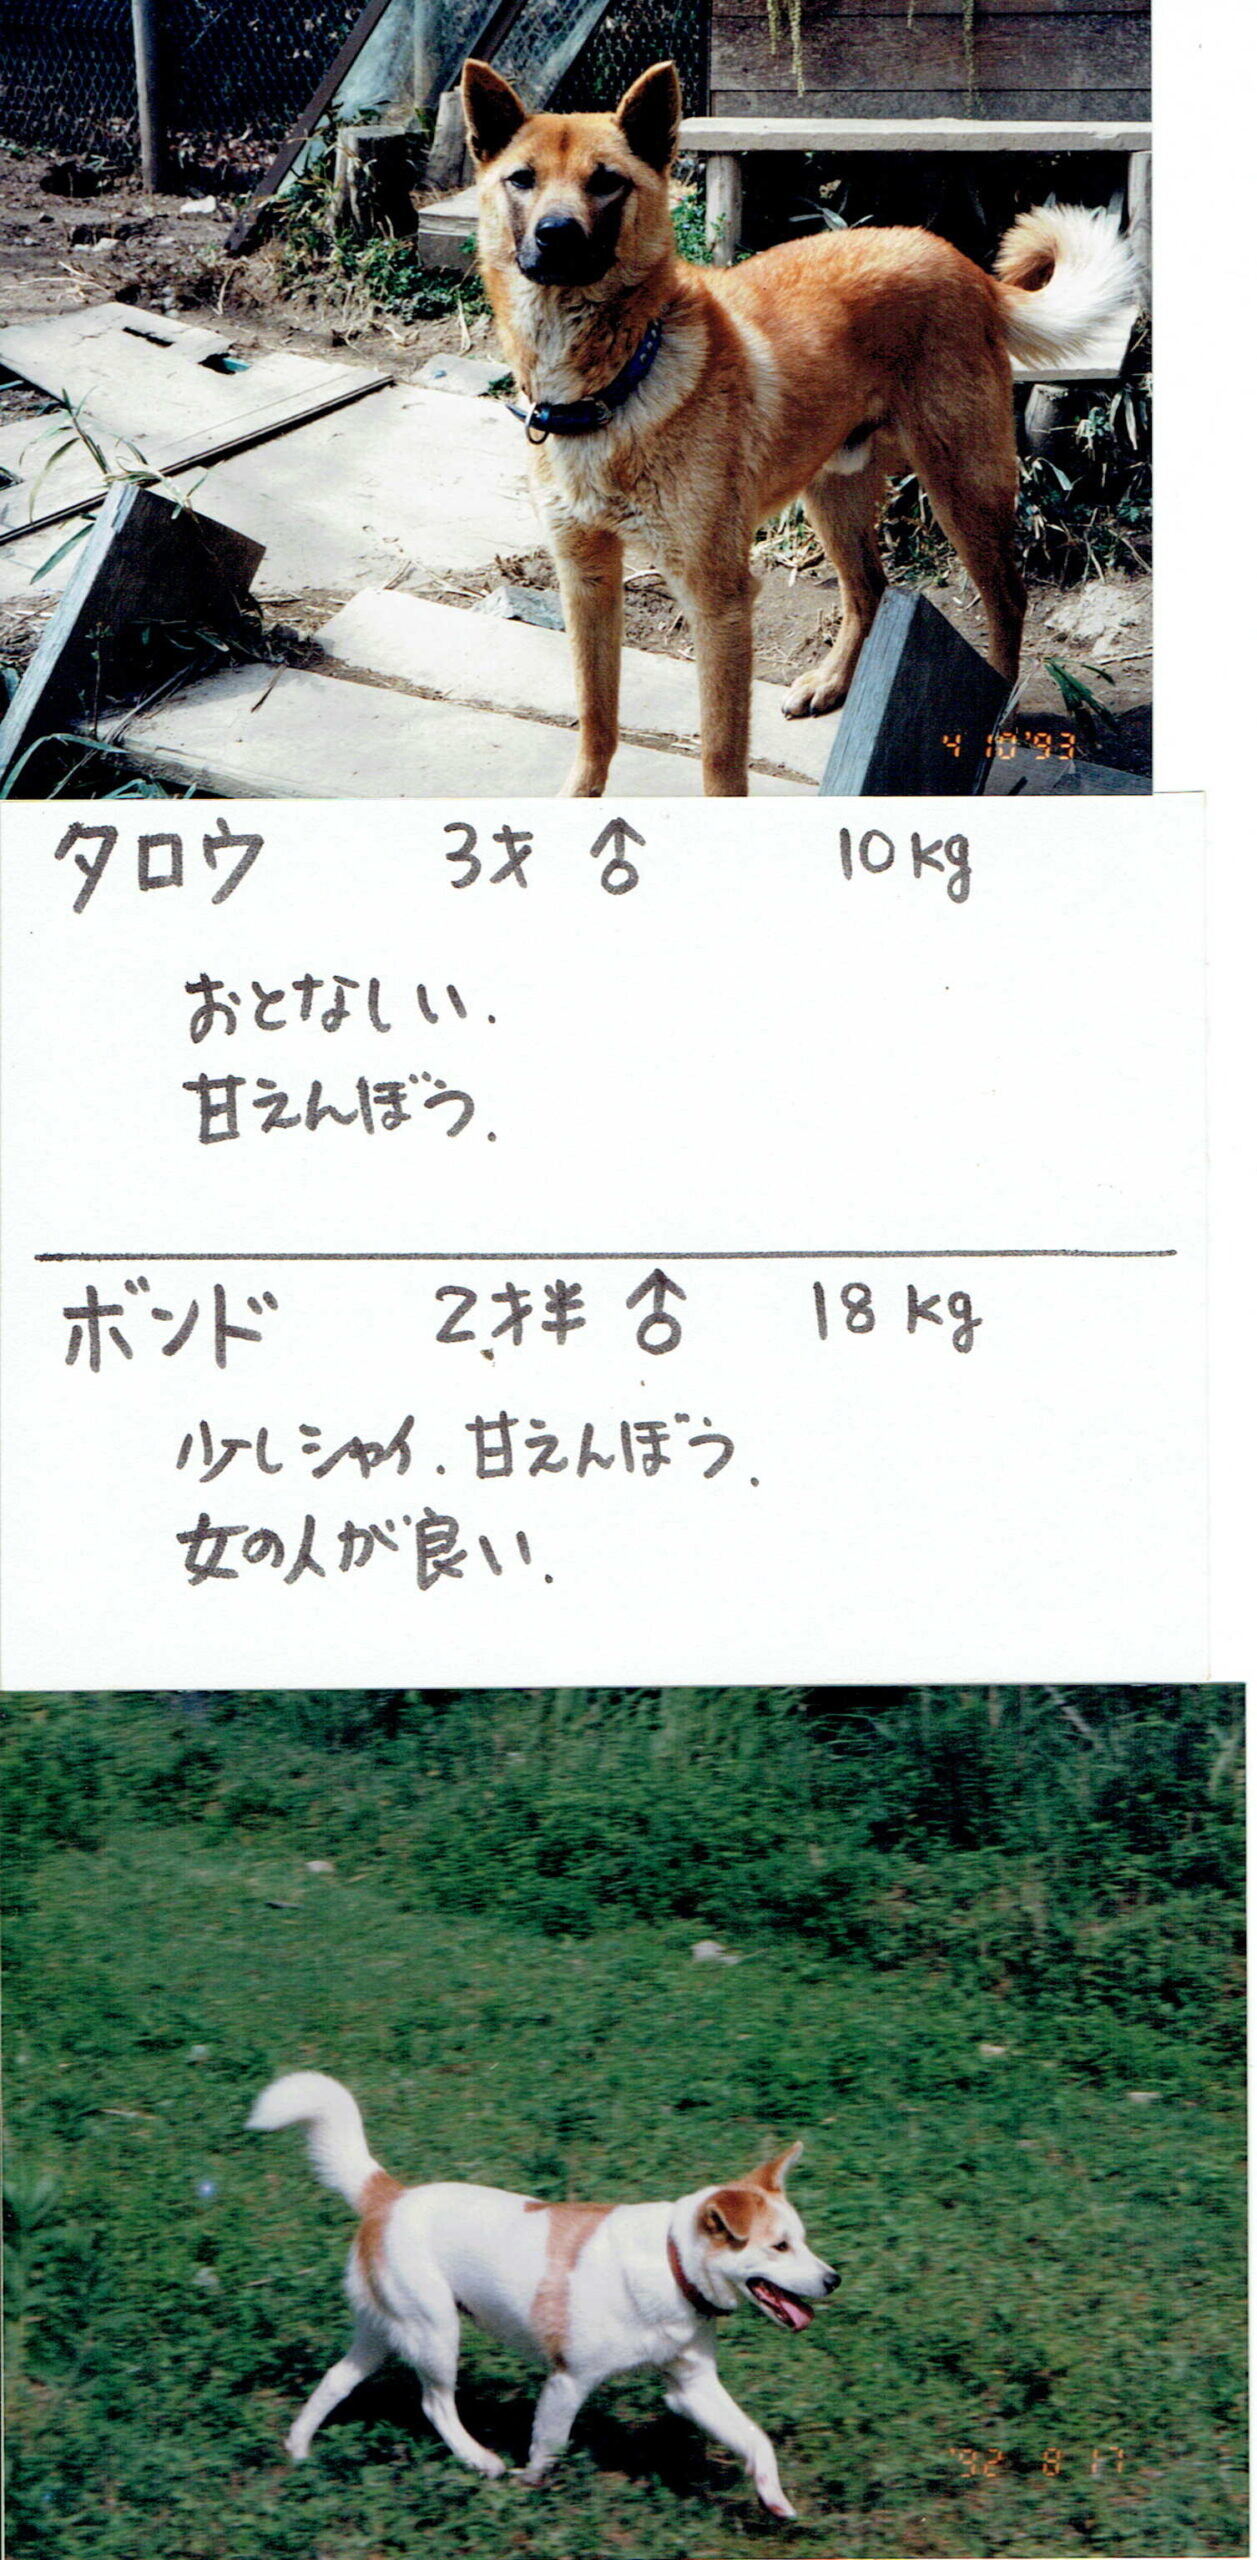 4 10 '93
タロウ 3才 ♂ 10kg
おとなしい.
甘えんぼう.
ボンド 2才半 ♂ 18kg
少しシャイ. 甘えんぼう.
女の人が良い.
'92 8 17